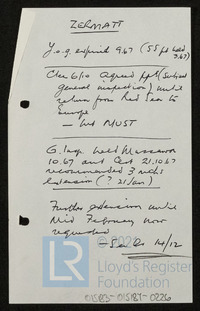 ZERMATT
Y.O.G expired 9.67 (SS ft held
9.67)
Che 6/10 agreed ppt (subject
general inspection) until
return from Red Sea to
Europe
— but MUST
G. insp. held Massawa
10.67 and Cert 21.10.67
recommended 3 mths
extension (? 21/Jan)
Further extension until
Mid February now
requested
14/12
© 202
LR
Lloyd's Register
Foundation
01583-01587-0226